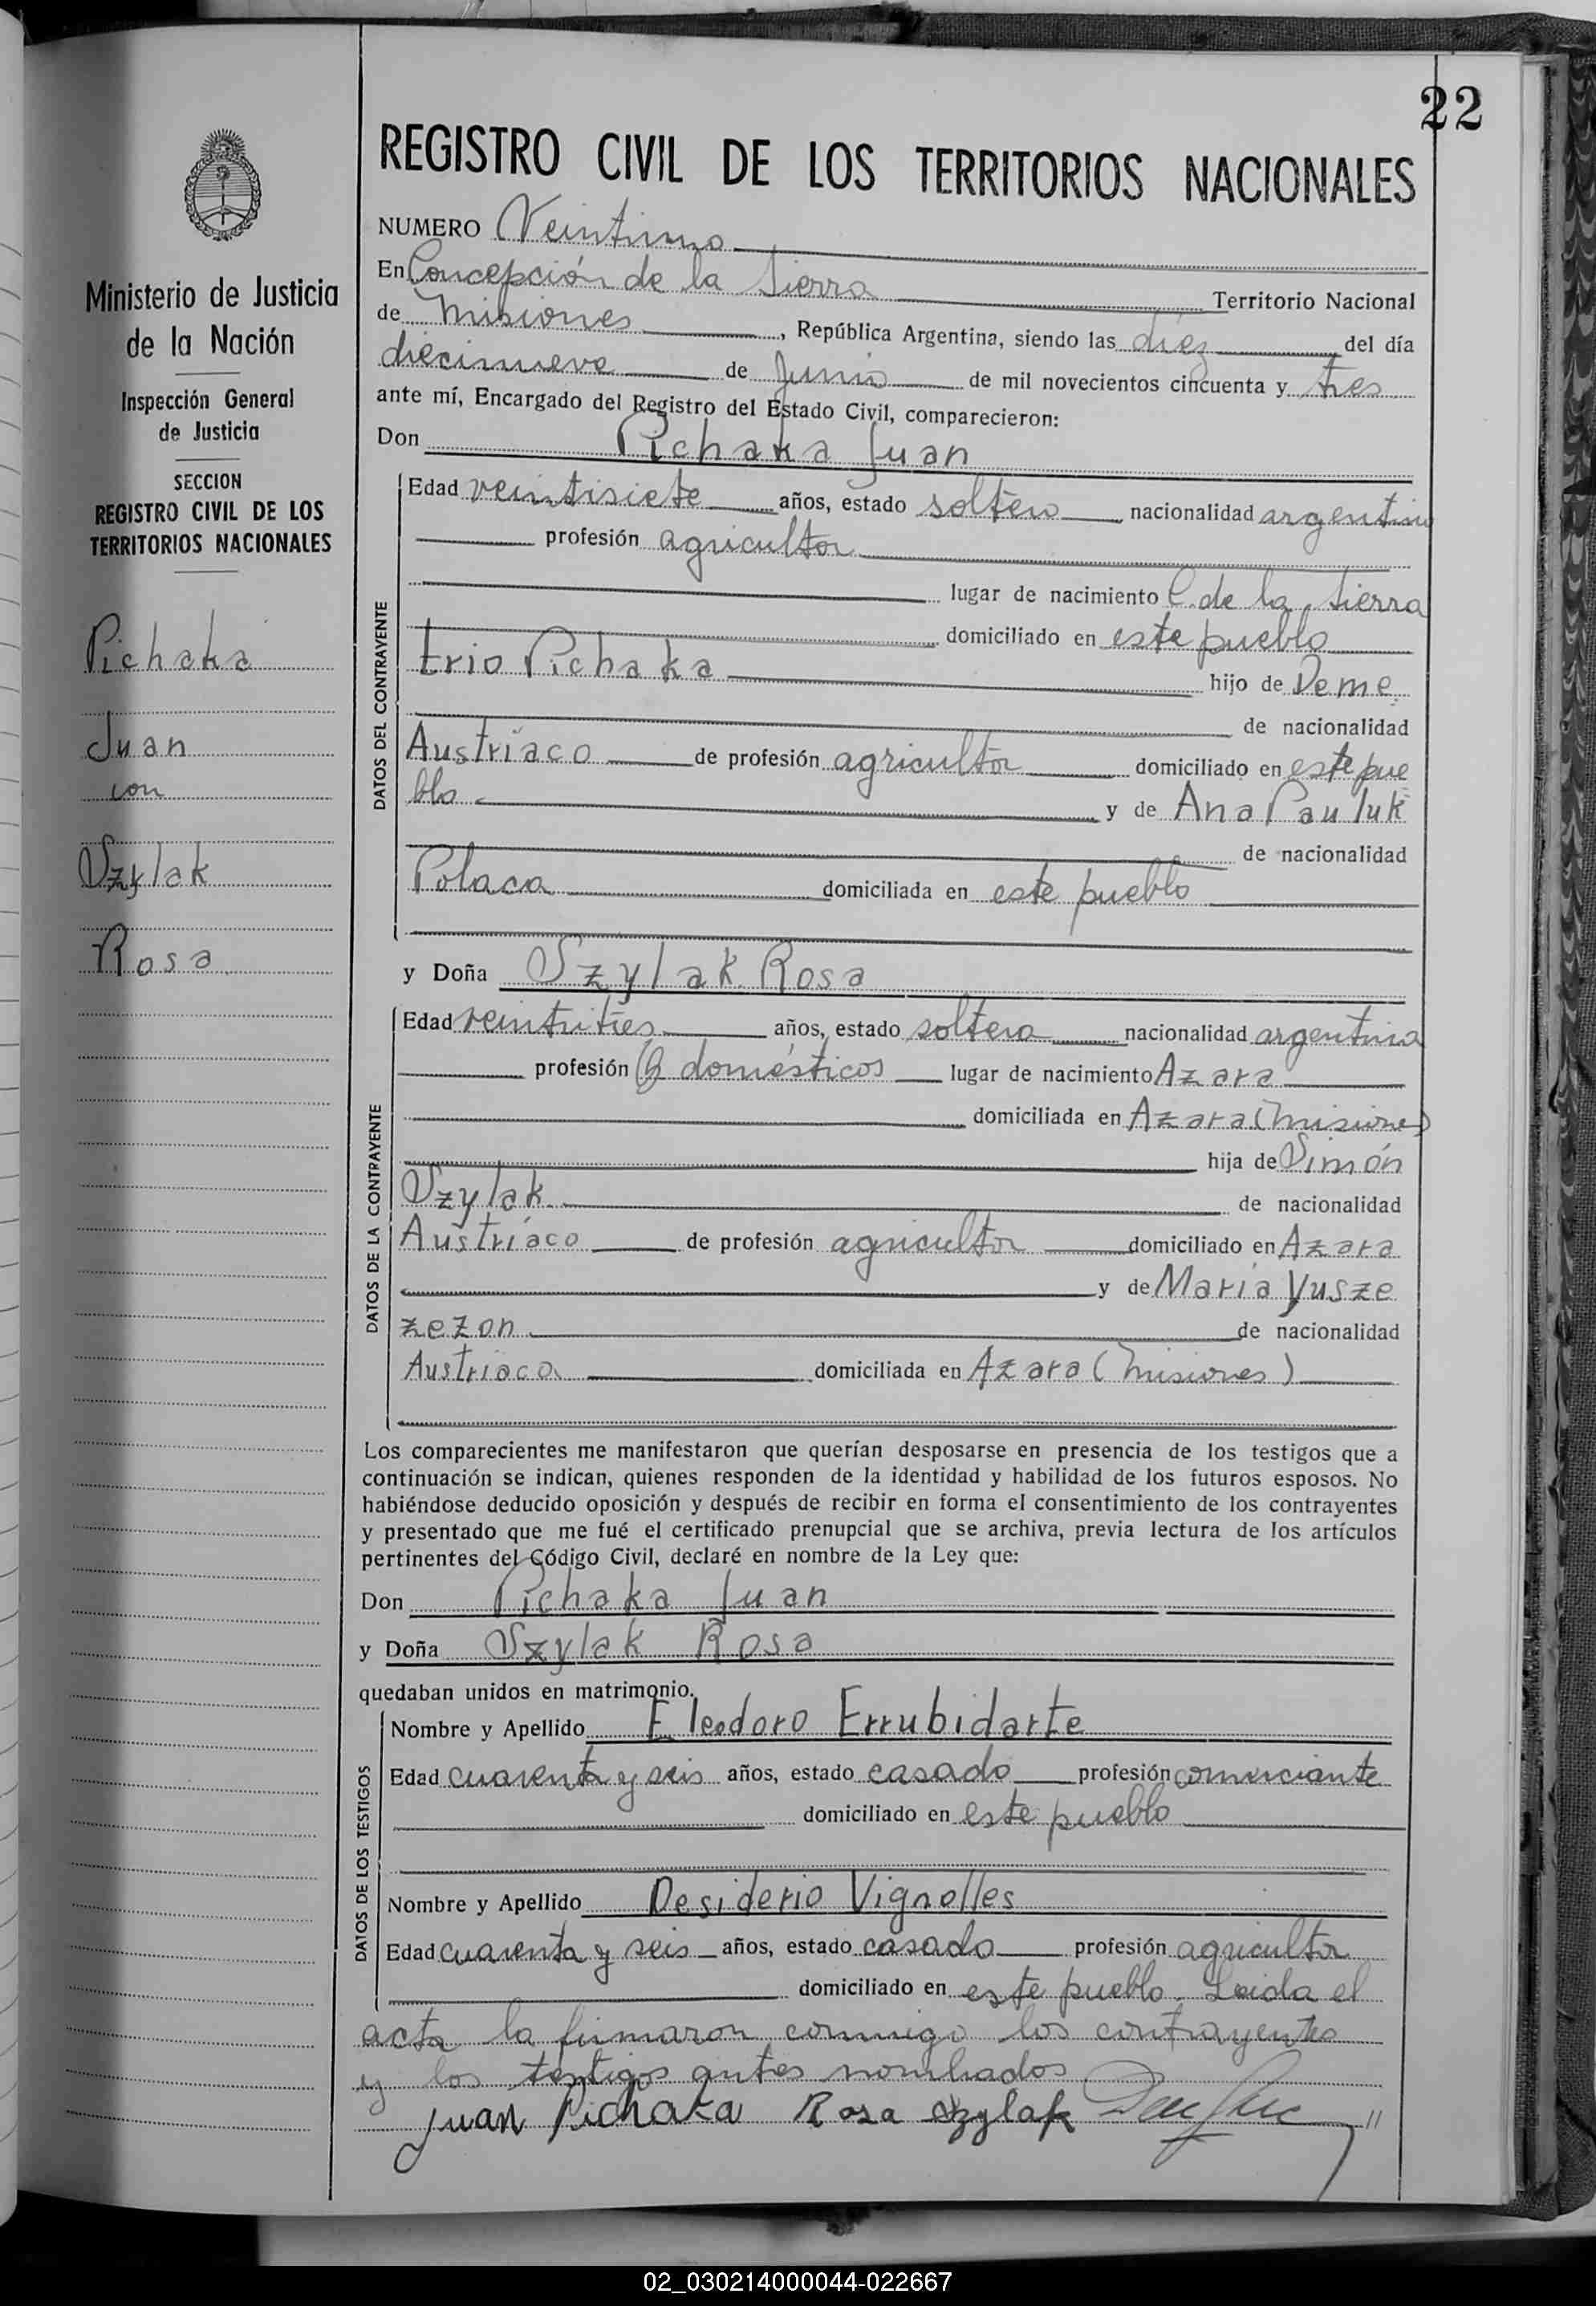 22
REGISTRO CIVIL DE LOS TERRITORIOS NACIONALES
Ministerio de Justicia
de la Nación
Inspección General
de Justicia
SECCION
REGISTRO CIVIL DE LOS
TERRITORIOS NACIONALES
Pichaka
Juan
con
Szylak
Rosa
NUMERO Veintiuno
En Concepción de la Sierra Territorio Nacional
de Misiones, República Argentina, siendo las diez del día
diecinueve de Junio de mil novecientos cincuenta y tres
ante mí, Encargado del Registro del Estado Civil, comparecieron:
Don Pichaka Juan
DATOS DEL CONTRAYENTE
Edad veintisiete años, estado soltero nacionalidad argentino
profesión agricultor
lugar de nacimiento C. de la Sierra
domiciliado en este pueblo
hijo de Deme
trio Pichaka
de nacionalidad
Austríaco de profesión agricultor domiciliado en este pue
blo y de Ana Pauluk
de nacionalidad
Polaca domiciliada en este pueblo
y Doña Szylak Rosa
DATOS DE LA CONTRAYENTE
Edad veintitres años, estado soltera nacionalidad argentina
profesión Q domésticos lugar de nacimiento Azara
domiciliada en Azara (Misiones)
hija de Simón
Szylak de nacionalidad
Austríaco de profesión agricultor domiciliado en Azara
y de María Yusze
zezon de nacionalidad
Austriaca domiciliada en Azara (Misiones)
Los comparecientes me manifestaron que querían desposarse en presencia de los testigos que a
continuación se indican, quienes responden de la identidad y habilidad de los futuros esposos. No
habiéndose deducido oposición y después de recibir en forma el consentimiento de los contrayentes
y presentado que me fué el certificado prenupcial que se archiva, previa lectura de los artículos
pertinentes del Código Civil, declaré en nombre de la Ley que:
Don Pichaka Juan
y Doña Szylak Rosa
quedaban unidos en matrimonio.
DATOS DE LOS TESTIGOS
Nombre y Apellido Eleodoro Errubidarte
Edad cuarenta y seis años, estado casado profesión comerciante
domiciliado en este pueblo
Nombre y Apellido Desiderio Vignolles
Edad cuarenta y seis años, estado casado profesión agricultor
domiciliado en este pueblo. Leida el
acta la firmaron conmigo los contrayentes
y los testigos antes nombrados
Juan Pichaka Rosa Szylak //
02_030214000044-022667